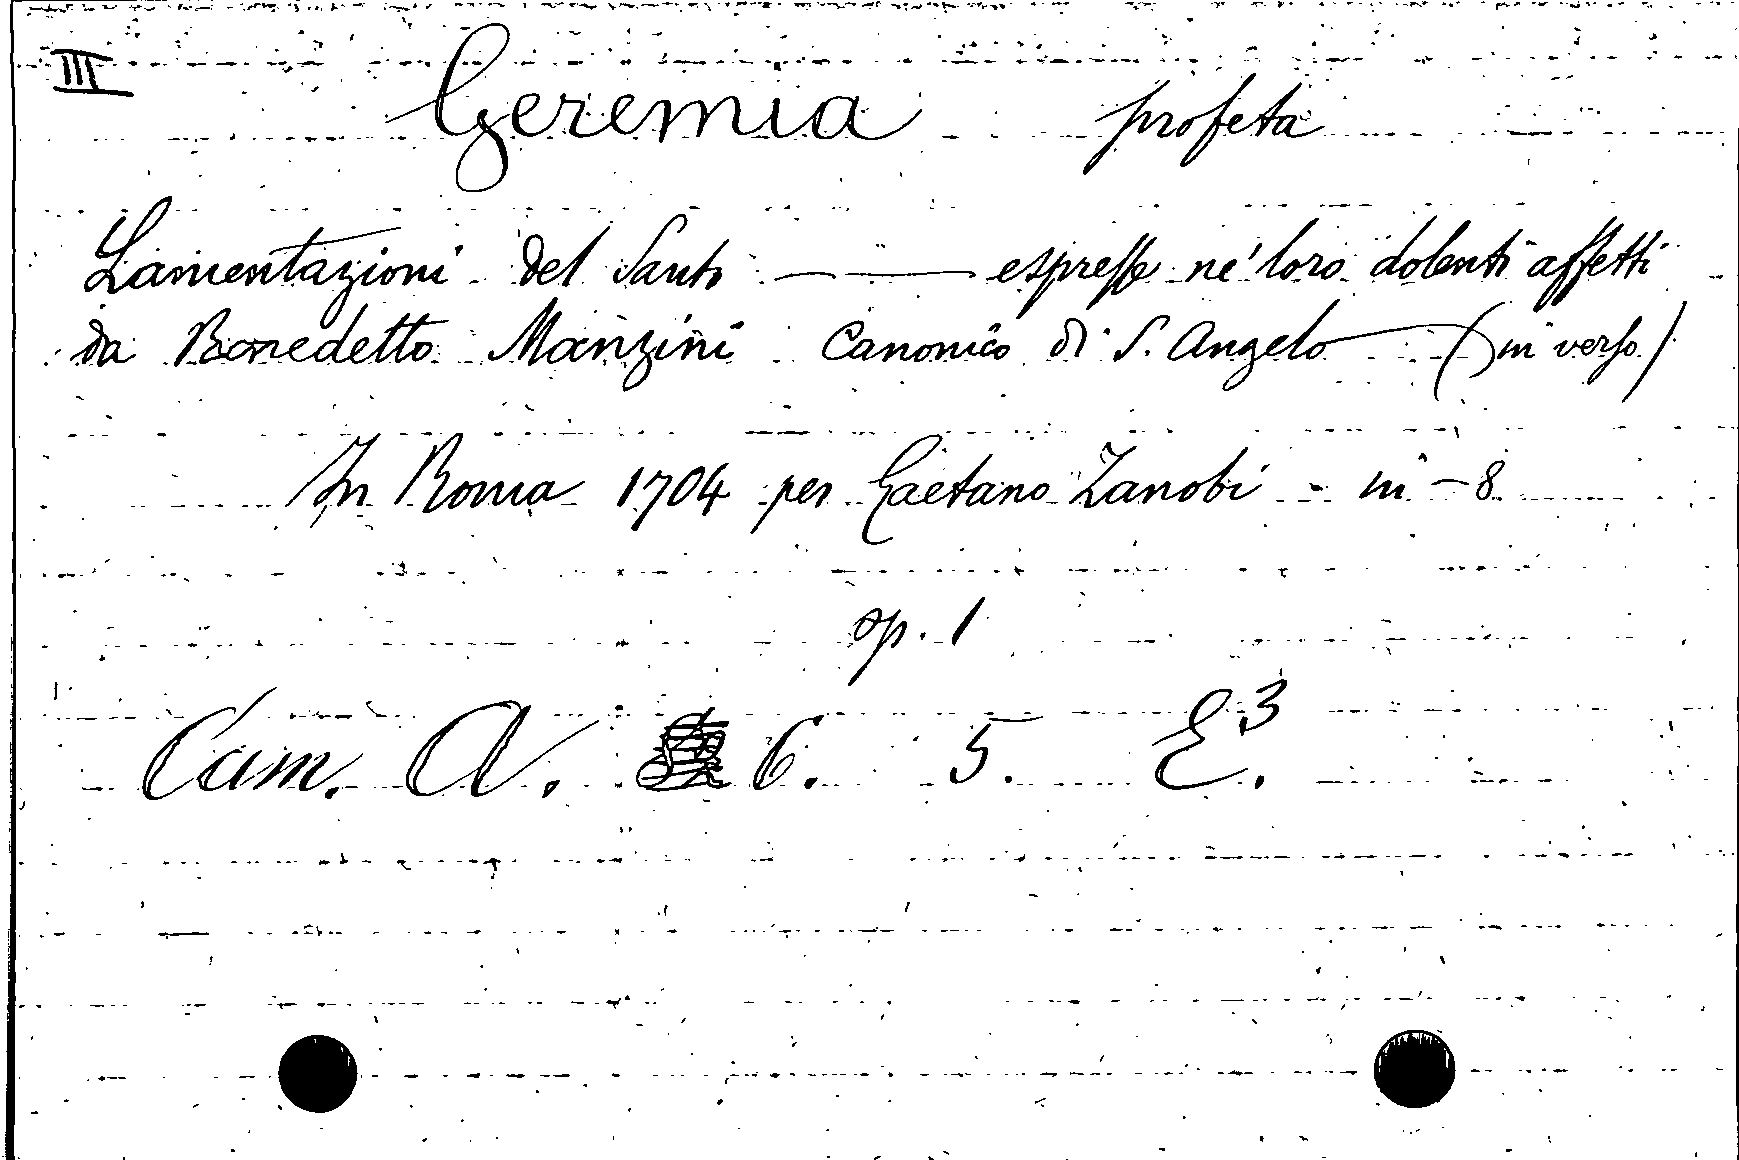 III
Geremia profeta
Lamentazioni del Santo — — espresse ne' loro dolenti affetti
da Benedetto Manzini Canonico di S. Angelo (in verso)
In Roma 1704 per Gaetano Zanobi - in - 8
op. 1
Cam. A. 6. 5. E³.